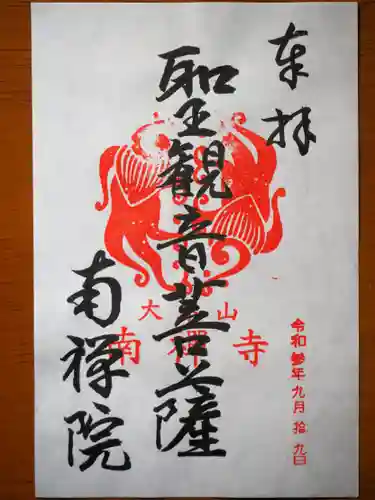 奉拝
聖観音菩薩
大山
南禪寺
南禅院
令和参年九月拾九日